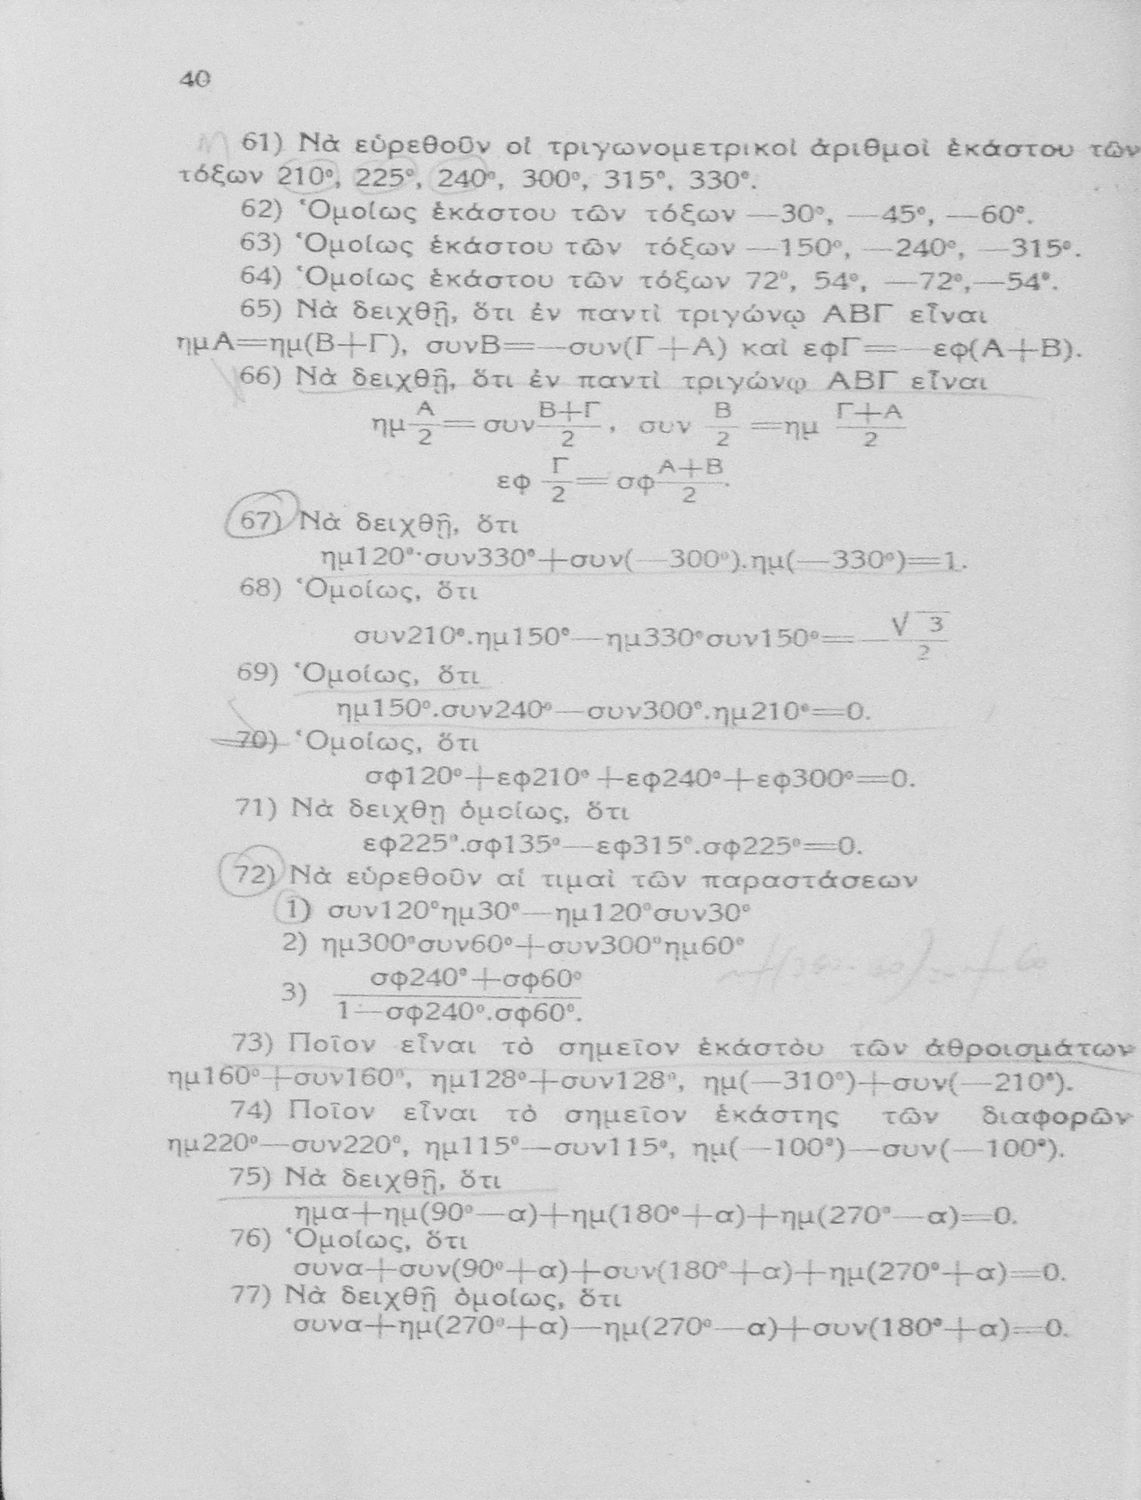 40
61) Νὰ εὑρεθοῦν οἱ τριγωνομετρικοὶ ἀριθμοὶ ἑκάστου τῶν
τόξων 210°, 225°, 240°, 300°, 315°, 330°.
62) Ὁμοίως ἑκάστου τῶν τόξων —30°, —45°, —60°.
63) Ὁμοίως ἑκάστου τῶν τόξων —150°, —240°, —315°.
64) Ὁμοίως ἑκάστου τῶν τόξων 72°, 54°, —72°,—54°.
65) Νὰ δειχθῇ, ὅτι ἐν παντὶ τριγώνῳ ΑΒΓ εἶναι
ημΑ=ημ(Β+Γ), συνΒ=—συν(Γ+Α) καὶ εφΓ=—εφ(Α+Β).
66) Νὰ δειχθῇ, ὅτι ἐν παντὶ τριγώνῳ ΑΒΓ εἶναι
ημ Α/2 = συν Β+Γ/2, συν Β/2 = ημ Γ+Α/2
εφ Γ/2 = σφ Α+Β/2.
67) Νὰ δειχθῇ, ὅτι
ημ120°·συν330°+συν(—300°).ημ(—330°)=1.
68) Ὁμοίως, ὅτι
συν210°.ημ150°—ημ330°συν150°=—√3/2
69) Ὁμοίως, ὅτι
ημ150°.συν240°—συν300°.ημ210°=0.
70) Ὁμοίως, ὅτι
σφ120°+εφ210°+εφ240°+εφ300°=0.
71) Νὰ δειχθη ὁμοίως, ὅτι
εφ225°.σφ135°—εφ315°.σφ225°=0.
72) Νὰ εὑρεθοῦν αἱ τιμαὶ τῶν παραστάσεων
1) συν120°ημ30°—ημ120°συν30°
2) ημ300°συν60°+συν300°ημ60°
3) σφ240°+σφ60°
1—σφ240°.σφ60°.
73) Ποῖον εἶναι τὸ σημεῖον ἑκάστου τῶν ἀθροισμάτων
ημ160°+συν160°, ημ128°+συν128°, ημ(—310°)+συν(—210°).
74) Ποῖον εἶναι τὸ σημεῖον ἑκάστης τῶν διαφορῶν
ημ220°—συν220°, ημ115°—συν115°, ημ(—100°)—συν(—100°).
75) Νὰ δειχθῇ, ὅτι
ημα+ημ(90°—α)+ημ(180°+α)+ημ(270°—α)=0.
76) Ὁμοίως, ὅτι
συνα+συν(90°+α)+συν(180°+α)+ημ(270°+α)=0.
77) Νὰ δειχθῇ ὁμοίως, ὅτι
συνα+ημ(270°+α)—ημ(270°—α)+συν(180°+α)=0.